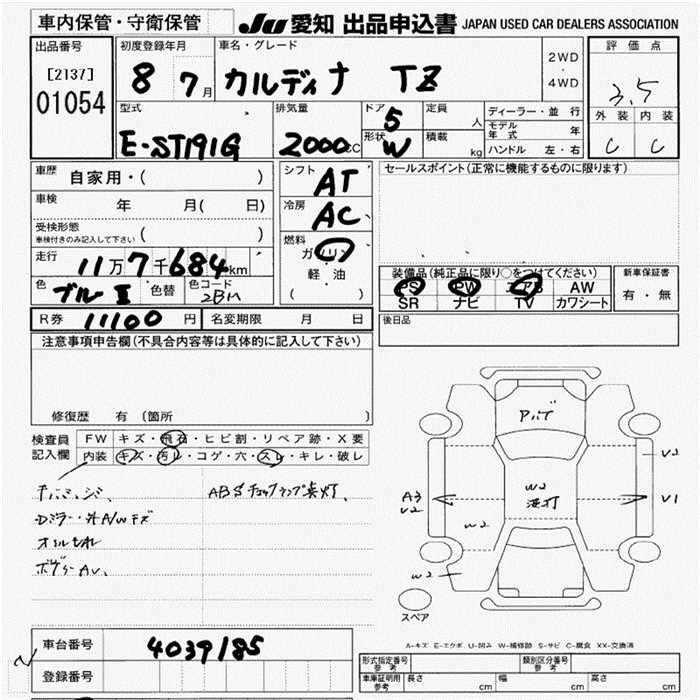 車内保管・守衛保管
JU 愛知 出品申込書 JAPAN USED CAR DEALERS ASSOCIATION
出品番号
[2137]
01054
初度登録年月
8 7月
車名・グレード
カルディナ TZ
2WD
・
4WD
評価点
3.5
外装 内装
C C
型式
E-ST191G
排気量
2000cc
ドア 5
形状 W
定員 人
積載 kg
ディーラー・並行
モデル年式 年
ハンドル 左・右
車歴 自家用・( )
車検 年 月( 日)
受検形態
車検付きのみ記入して下さい ( )
走行
11万7千684km
色 ブルーⅡ 色替 色コード
シフト AT
冷房 AC
燃料
ガソリン
軽・油
( )
セールスポイント(正常に機能するものに限ります)
装備品(純正品に限り○をつけてください)
PS PW エアB AW
SR ナビ TV カワシート
新車保証書
有・無
R券 11100円 名変期限 月 日
後日品
注意事項申告欄(不具合内容等は具体的に記入して下さい)
修復歴 有(箇所
検査員記入欄
FW キズ・飛石・ヒビ割・リペア跡・X要
内装 キズ・汚レ・コゲ・穴・スレ・キレ・破レ
ABSチェックランプ点灯、
A3
V2
W2
W2
W2
V2
V1
スペア
A-キズ E-エクボ U-凹み W-補修跡 S-サビ C-腐食 XX-交換済
車台番号 4039185
登録番号
形式指定番号参考 類別区分番号参考
車庫証明用参考 長さ cm 幅 cm 高さ cm